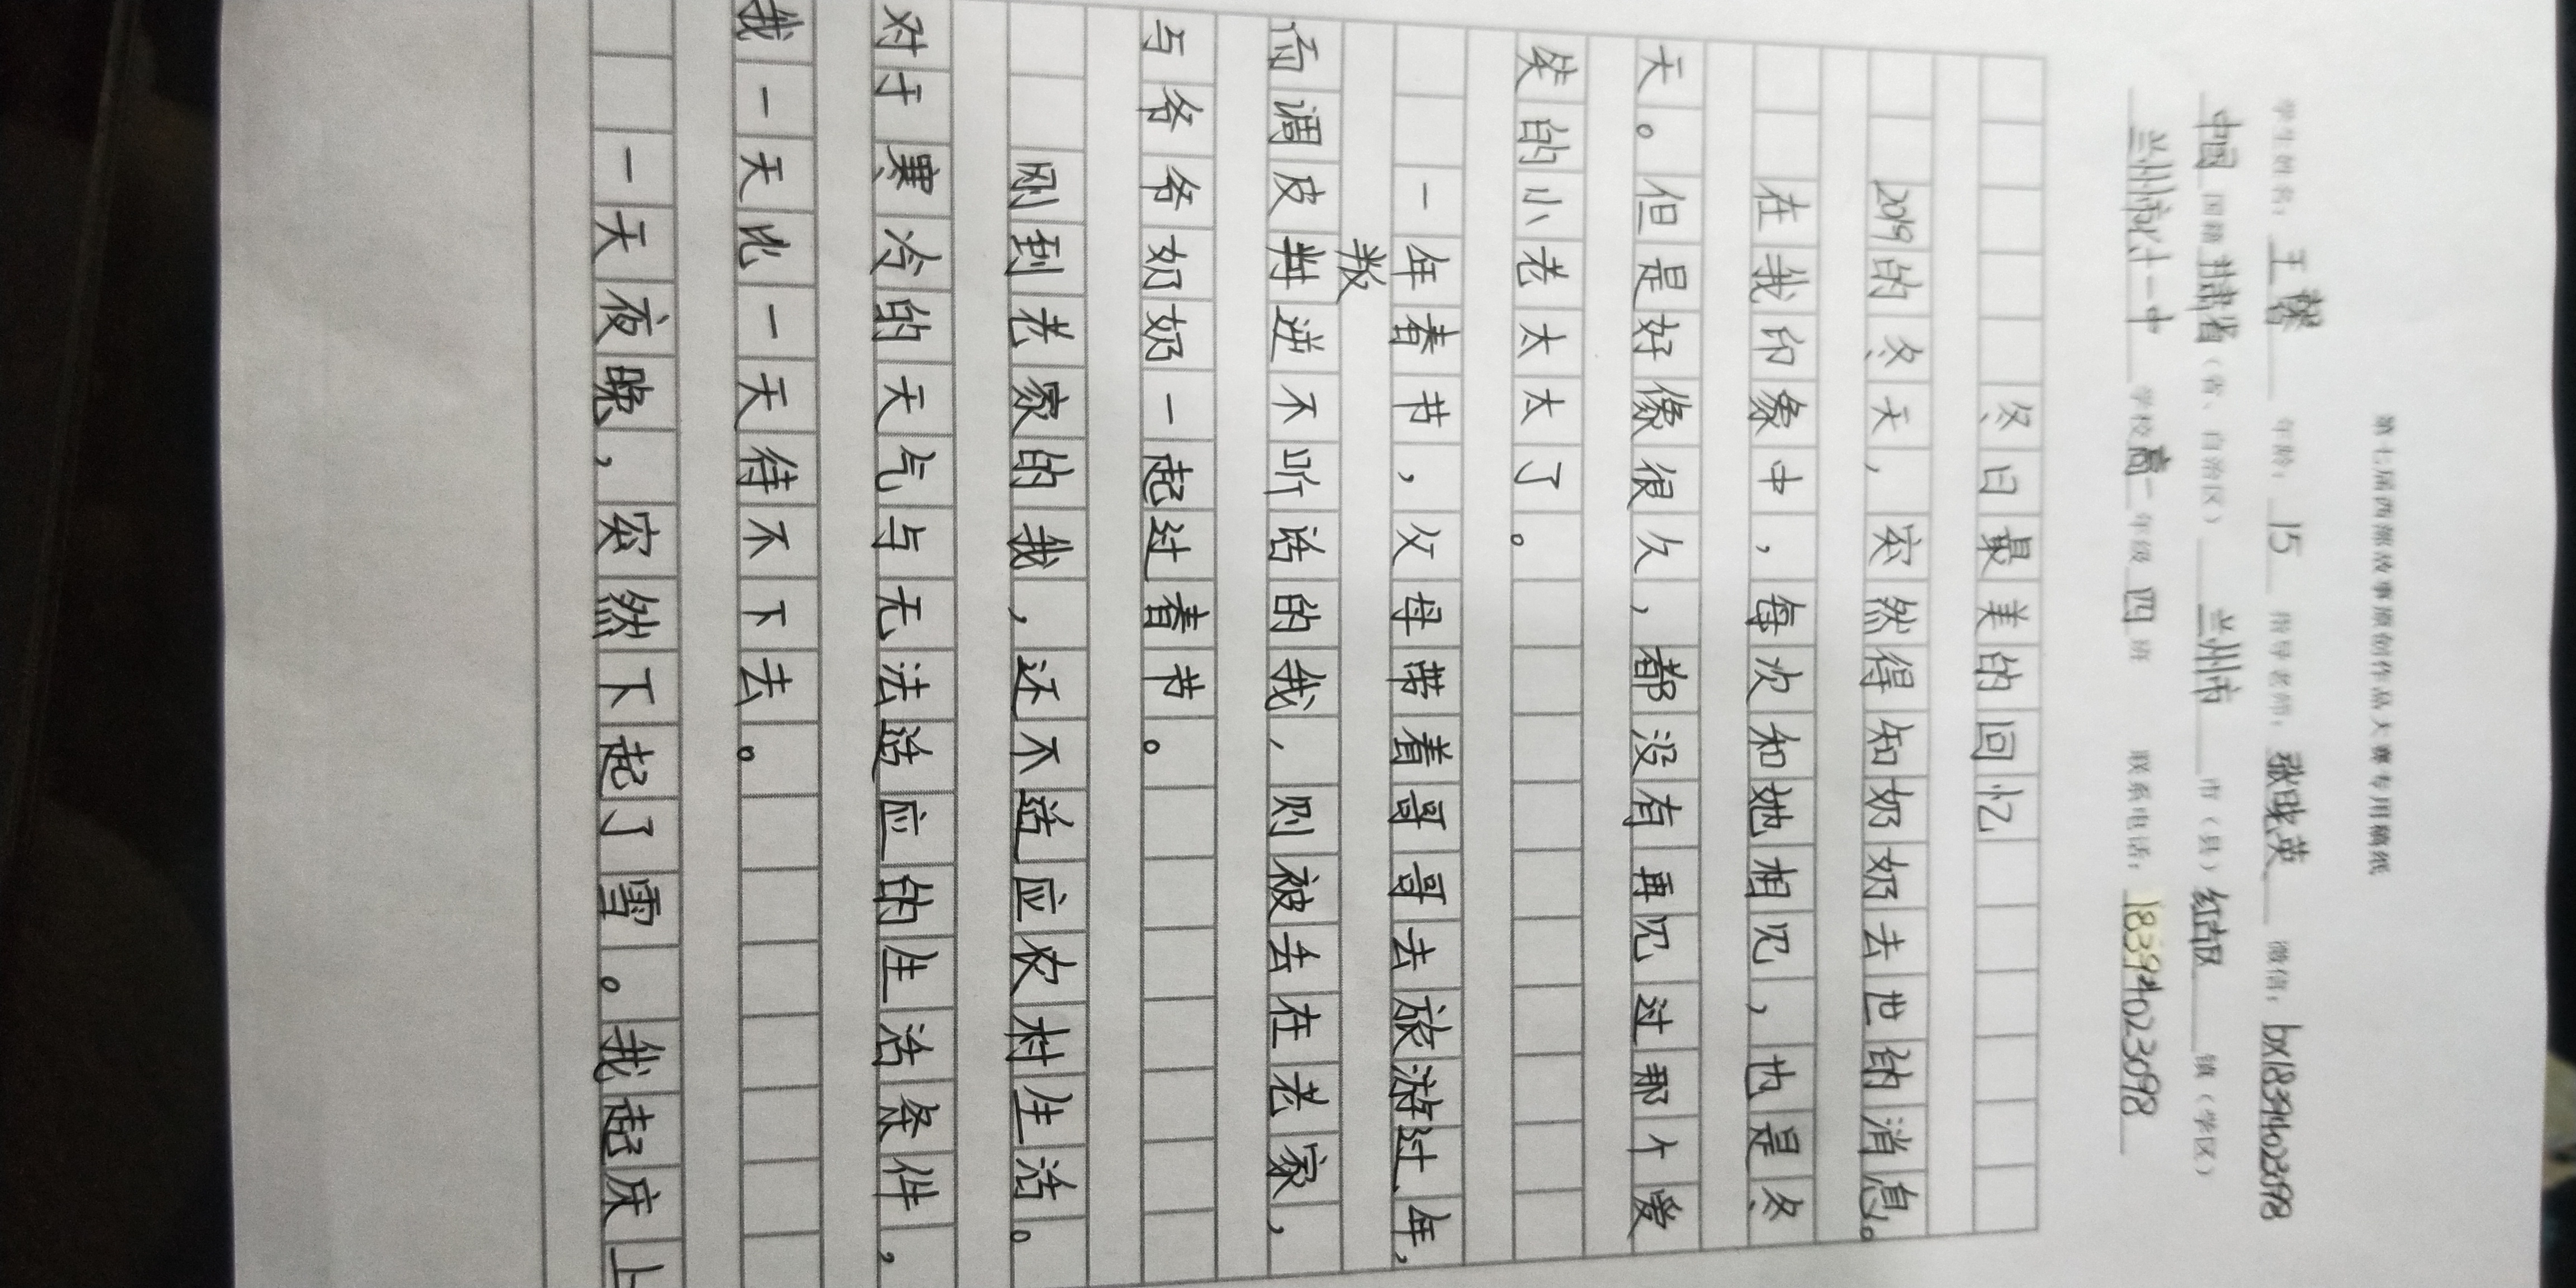 第七届西部故事原创作品大赛专用稿纸
学生姓名：王馨 年龄：15 指导老师：张晓英 微信：bx18394023098
中国 国籍 甘肃省（省、自治区） 兰州市 市（县） 红古区 镇（学区）
兰州市六十一中 学校 高一 年级 四 班 联系电话：18394023098
冬日最美的回忆
2019的冬天，突然得知奶奶去世的消息。
在我印象中，每次和她相见，也是冬
天。但是好像很久，都没有再见过那个爱
笑的小老太太了。
一年春节，父母带着哥哥去旅游过年，
叛
而调皮进不听话的我，则被丢在老家，
与爷爷奶奶一起过春节。
刚到老家的我，还不适应农村生活。
对于寒冷的天气与无法适应的生活条件，
我一天比一天待不下去。
一天夜晚，突然下起了雪。我趁庆上